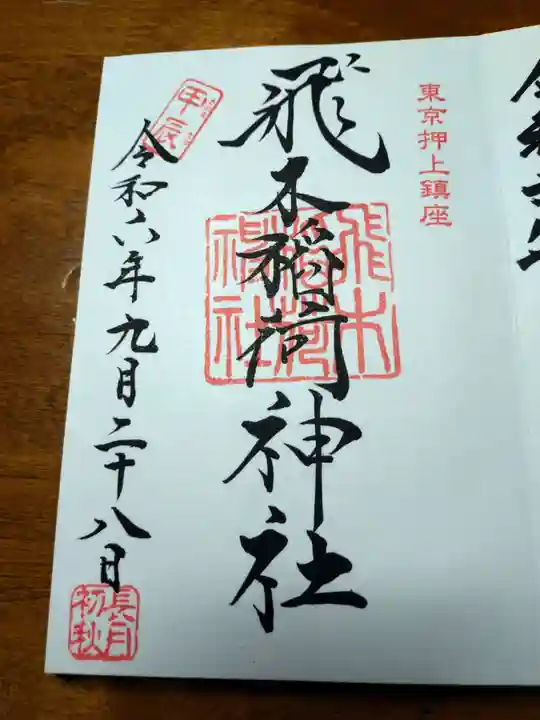 東京押上鎮座
飛木稲荷神社
飛木
稲荷
神社
甲辰
令和六年九月二十八日
長月
初秋